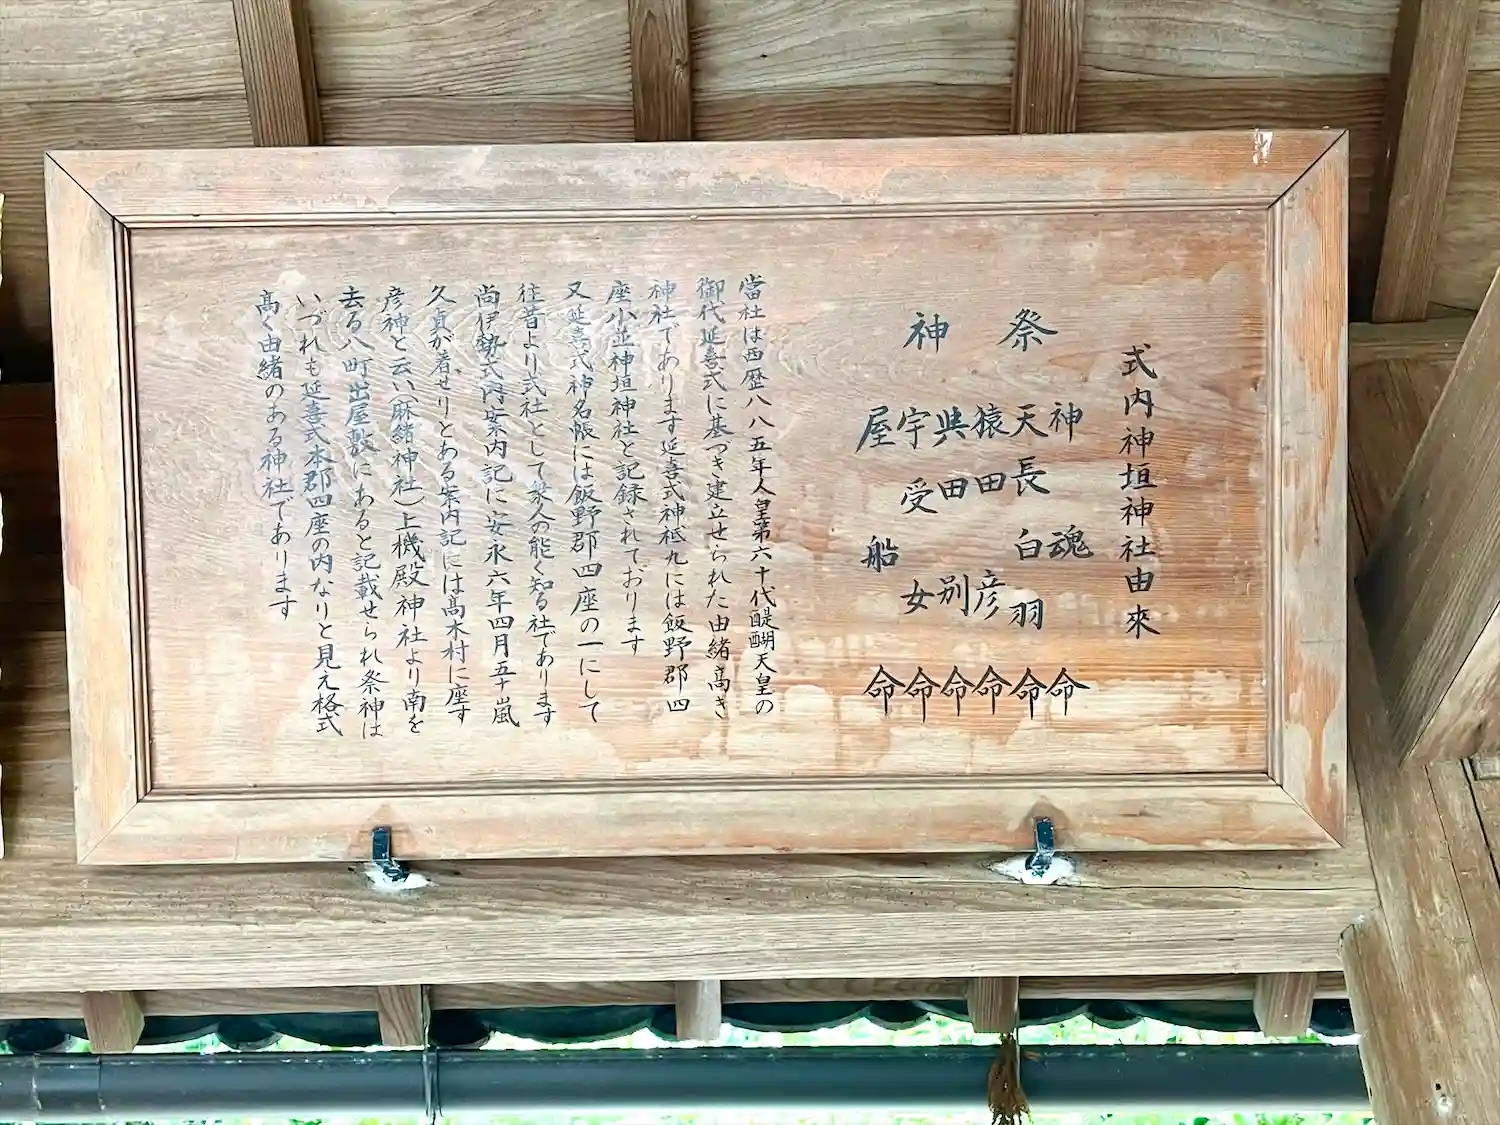 式内神垣神社由來
祭神
神魂命
天長白羽命
猿田彦命
與田別命
宇受女命
屋船命
當社は西歴八八五年人皇第六十代醍醐天皇の
御代延喜式に基づき建立せられた由緒高き
神社であります延喜式神祗九には飯野郡四
座小並神垣神社と記録されております
又延喜式神名帳には飯野郡四座の一にして
往昔より式社として衆人の能く知る社であります
尚伊勢式内案内記に安永六年四月五十嵐
久貞が着せりとある案内記には髙木村に座す
彦神と云い(麻緒神社)上機殿神社より南を
去る八町出屋敷にあると記載せられ祭神は
いづれも延喜式本郡四座の内なりと見え格式
髙く由緒のある神社であります